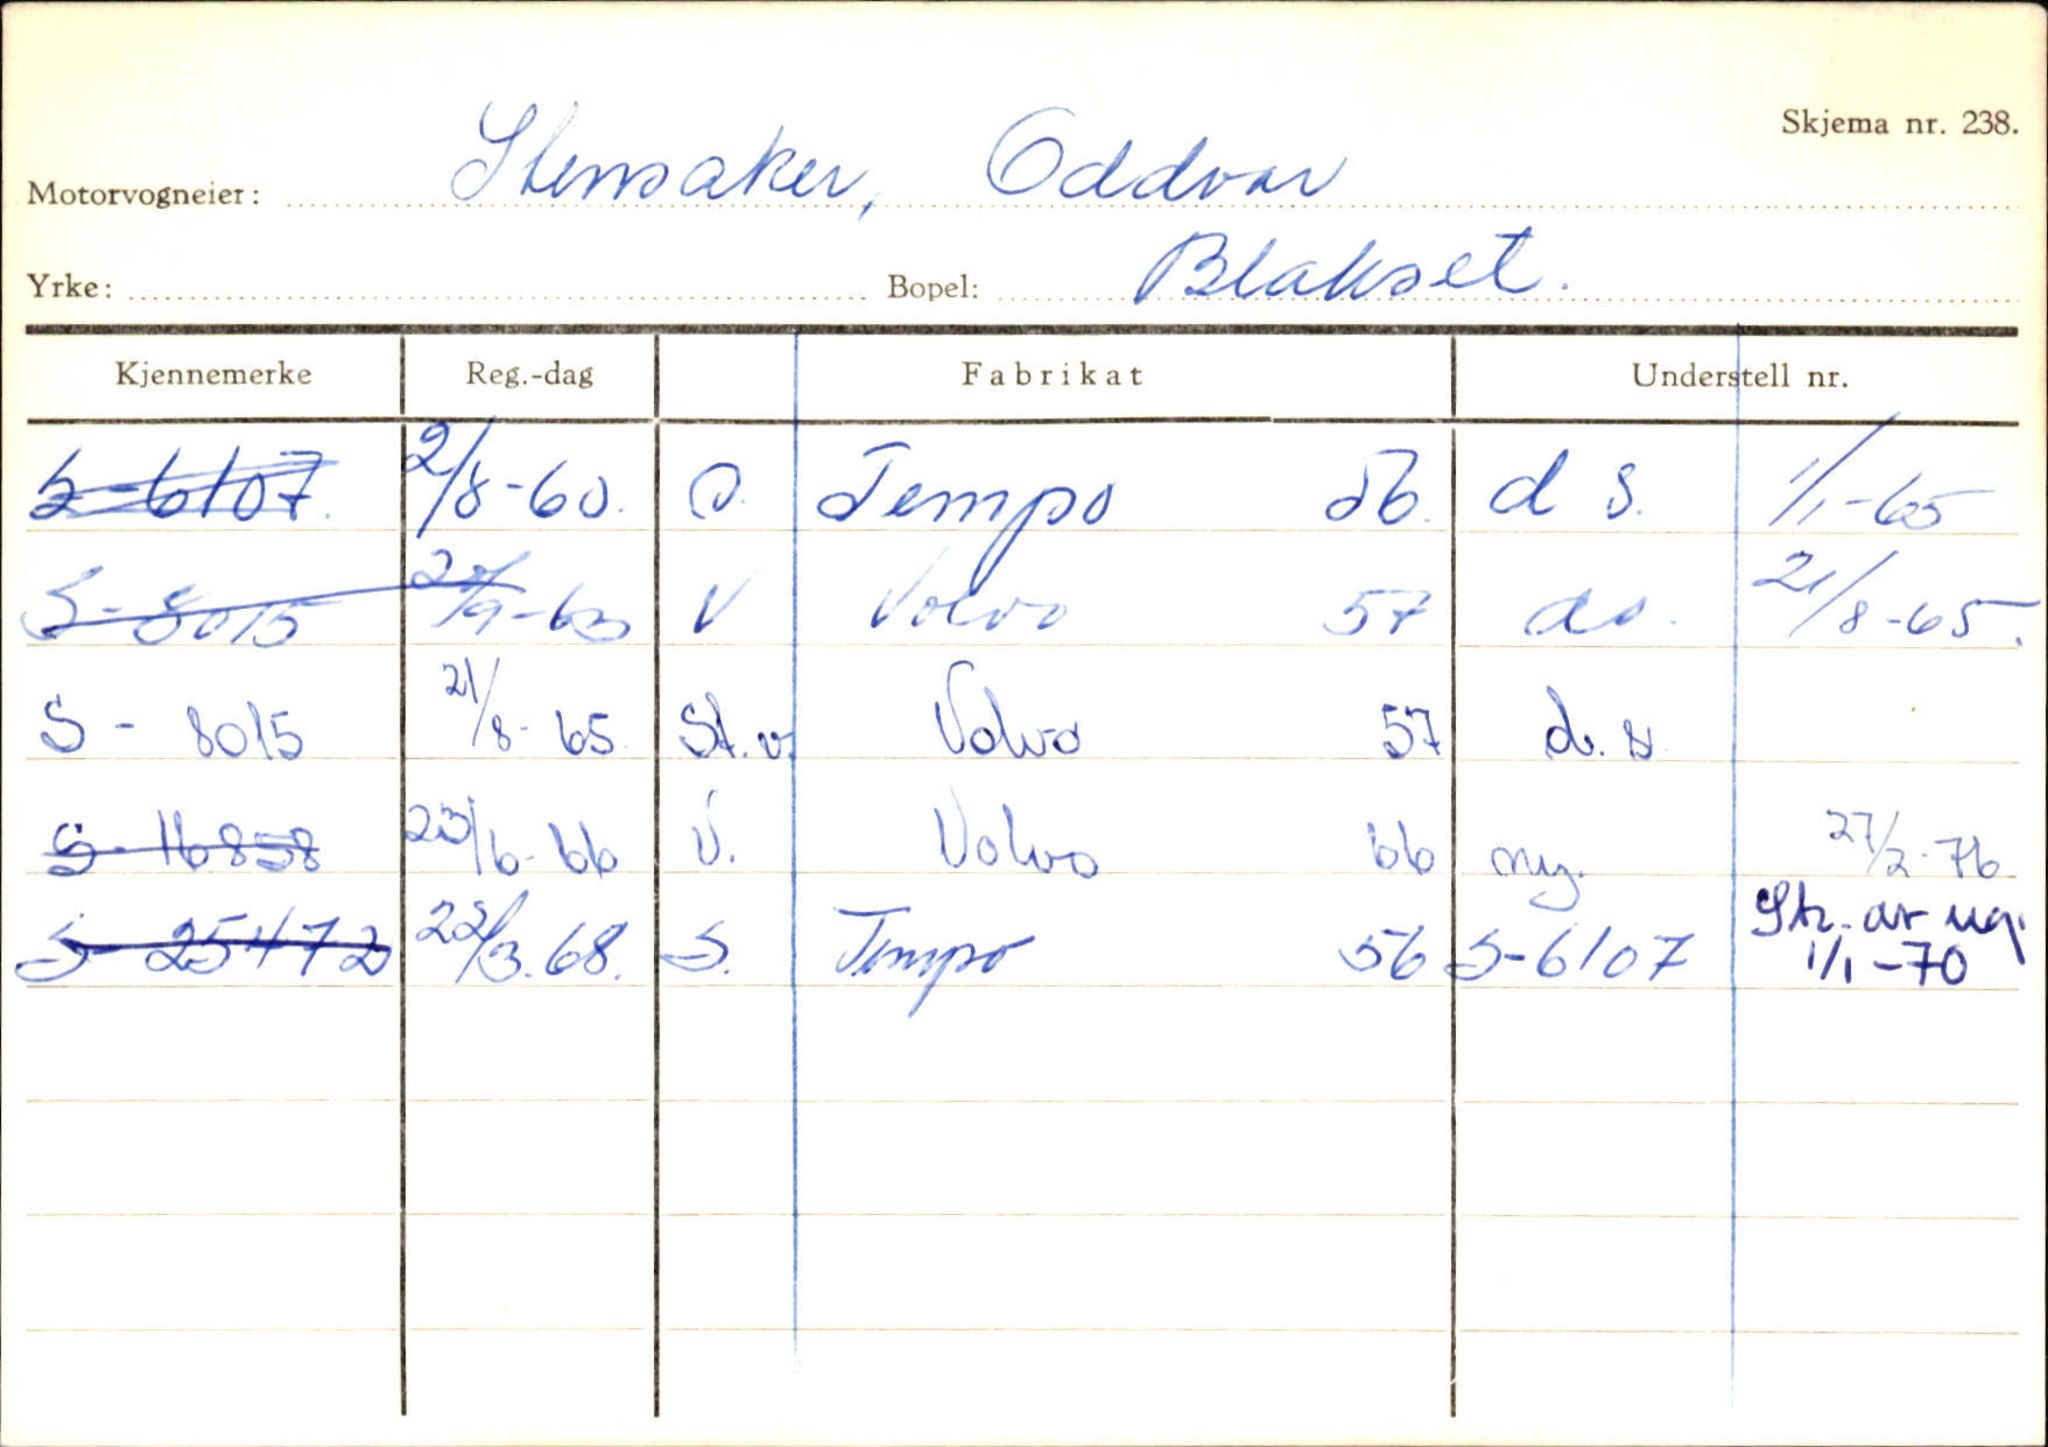 Skjema nr. 238.
Motorvogneier: Stensaker, Oddvar
Yrke: Bopel: Blakset.
Kjennemerke Reg.-dag Fabrikat Understell nr.
S-6107. 2/8-60. S. Tempo 56. d s. 1/1-65
S-8015 /9-63 V Volvo 57 ds. 21/8-65.
S - 8015 21/8-65 St.v. Volvo 57 d.s
S-16858 23/6-66 V. Volvo 66 ny. 27/2-76
S-25472 22/3.68. S. Tempo 56 S-6107 Str. av reg. 1/1-70